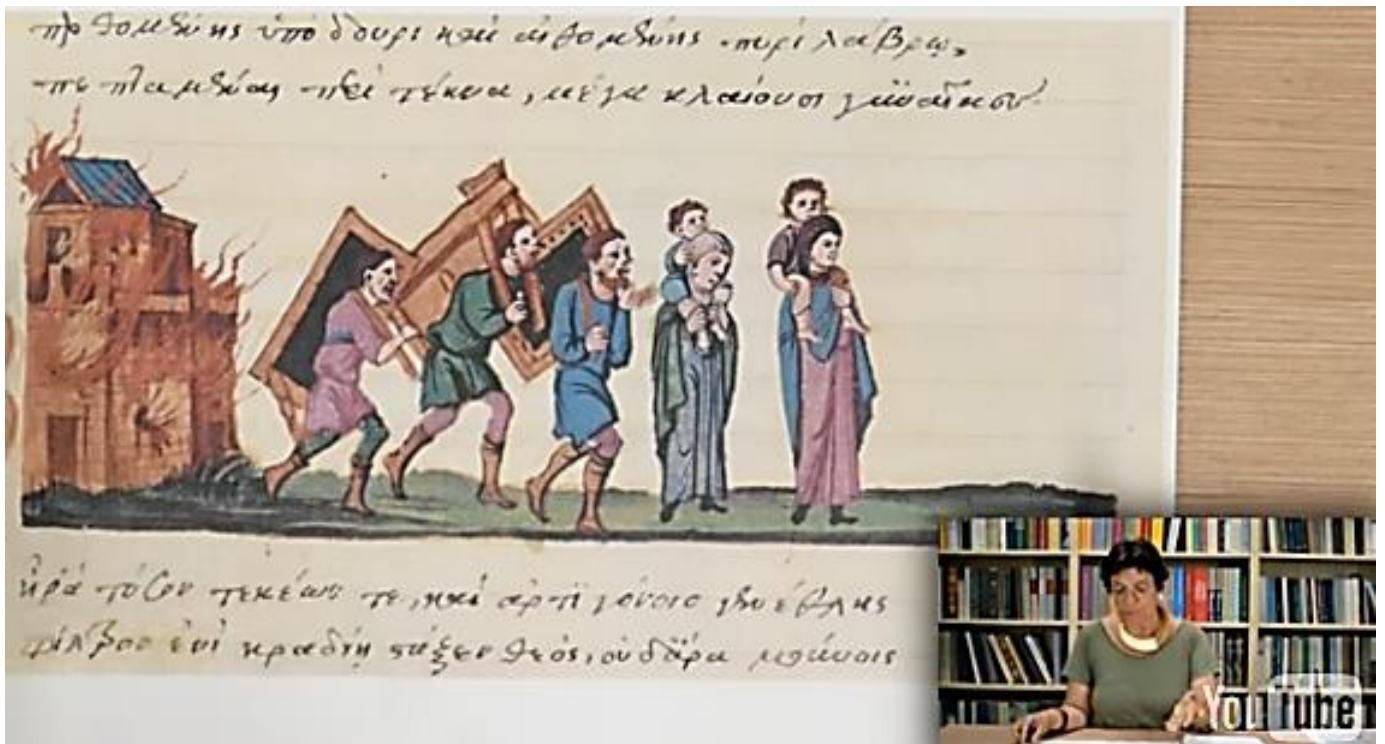 περθομένης ὑπὸ δουρὶ καὶ αἰθομένης πυρὶ λάβρω,
πεπταμέναι περὶ τέκνα, μέγα κλαίουσι γυναῖκες
ἦρα τόσον τεκέων τε, καὶ ἀρτιγόνοιο γενέθλης
φίλτρον ἐνὶ κραδίη στάξεν θεός, οὐδ' ἄρα μούνοις
YouTube